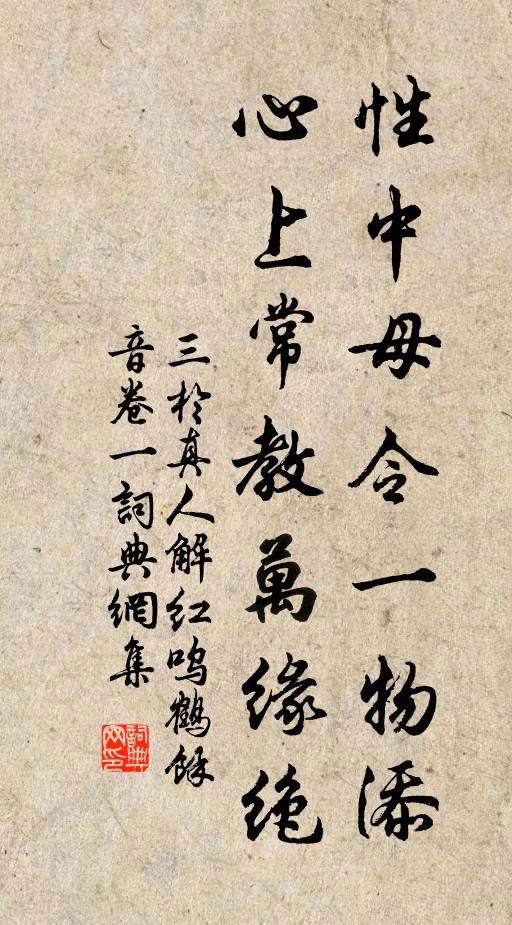 性中毋令一物添
心上常教萬緣絶
三於真人解红鸣鶴餘
音卷一詞典網集
詞典
网印